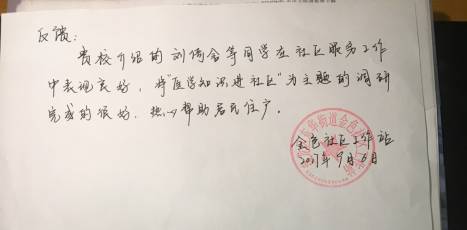 反馈:
贵校介绍的刘倚含等同学在社区服务工作
中表现良好,将"医学知识进社区"为主题的调研
完成的很好,热心帮助居民住户。
金色社区工作站
2017年9月6日